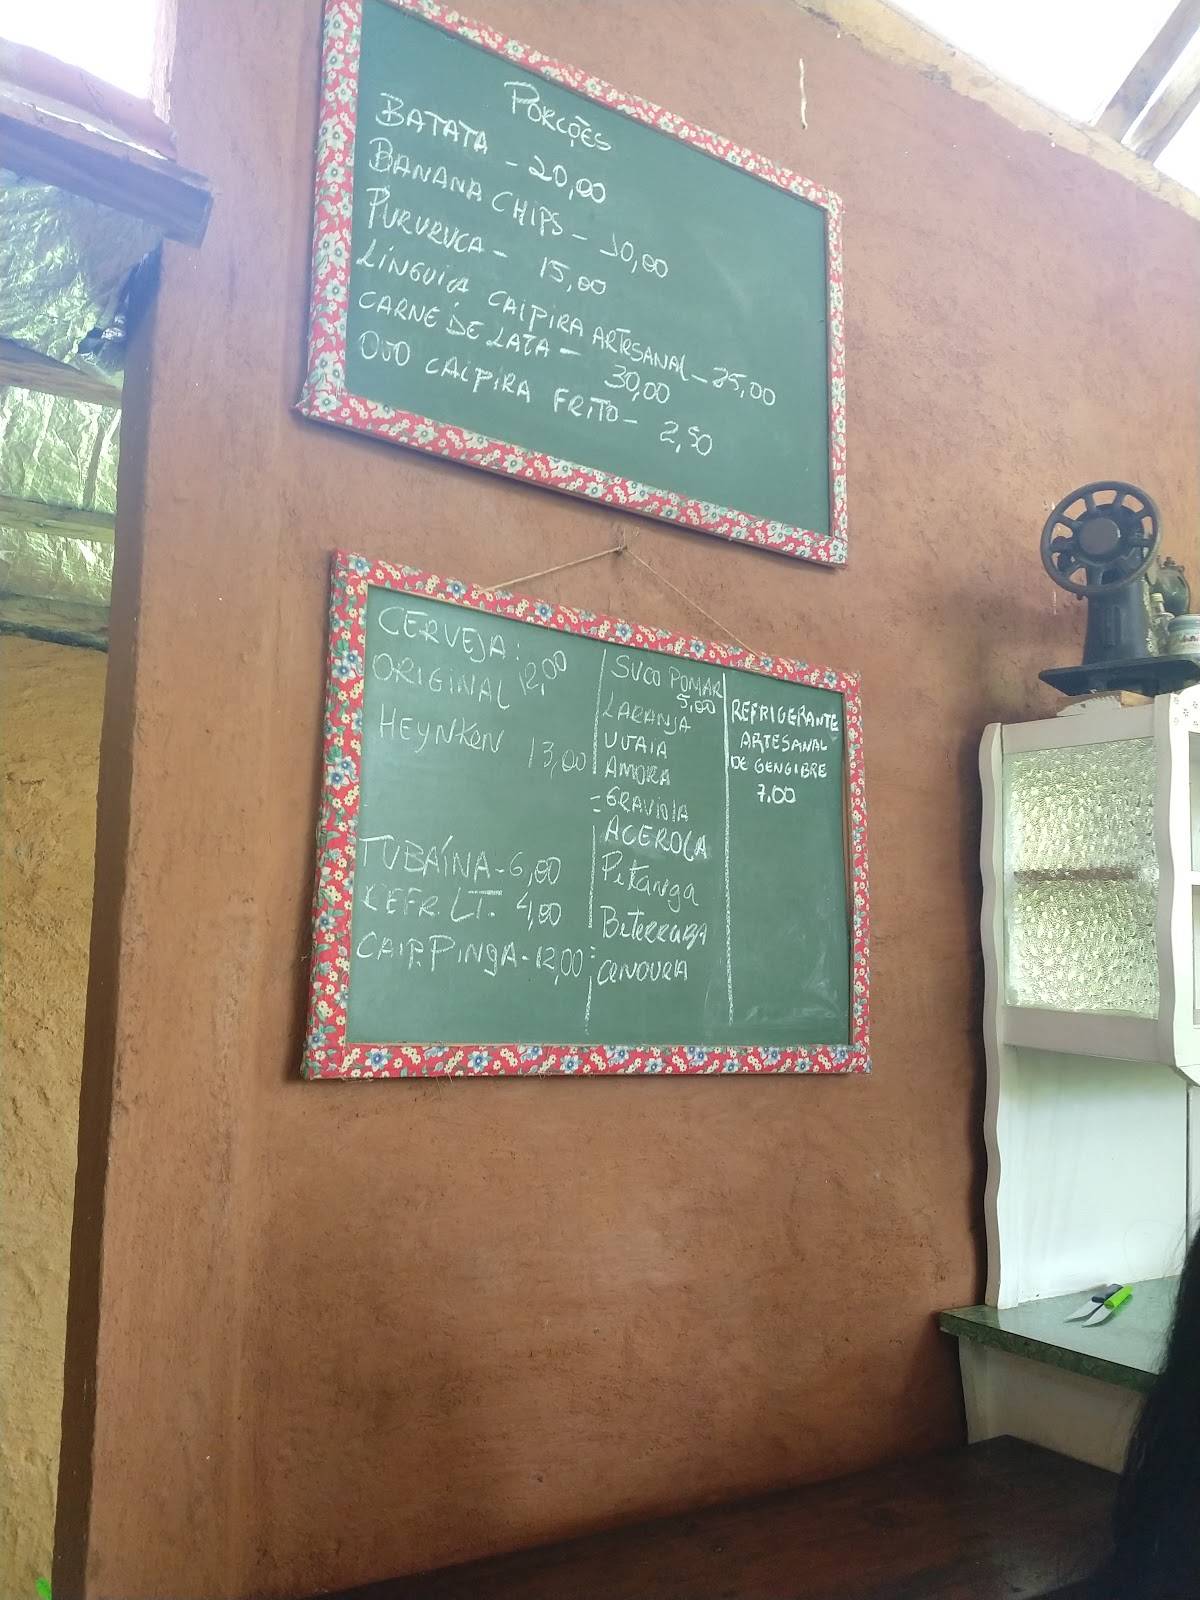 PORÇÕES
BATATA - 20,00
BANANA CHIPS - 10,00
PURURUCA - 15,00
LINGUIÇA CAIPIRA ARTESANAL - 25,00
CARNE DE LATA - 30,00
OVO CAIPIRA FRITO - 2,50
CERVEJA:
ORIGINAL 12,00
HEYNKEN 13,00
TUBAÍNA - 6,00
REFR. LT. 4,00
CAIP. PINGA - 12,00
SUCO POMAR
5,00
LARANJA
UVAIA
AMORA
GRAVIOLA
ACEROLA
Pitanga
BETERRABA
CENOURA
REFRIGERANTE
ARTESANAL
DE GENGIBRE
7,00